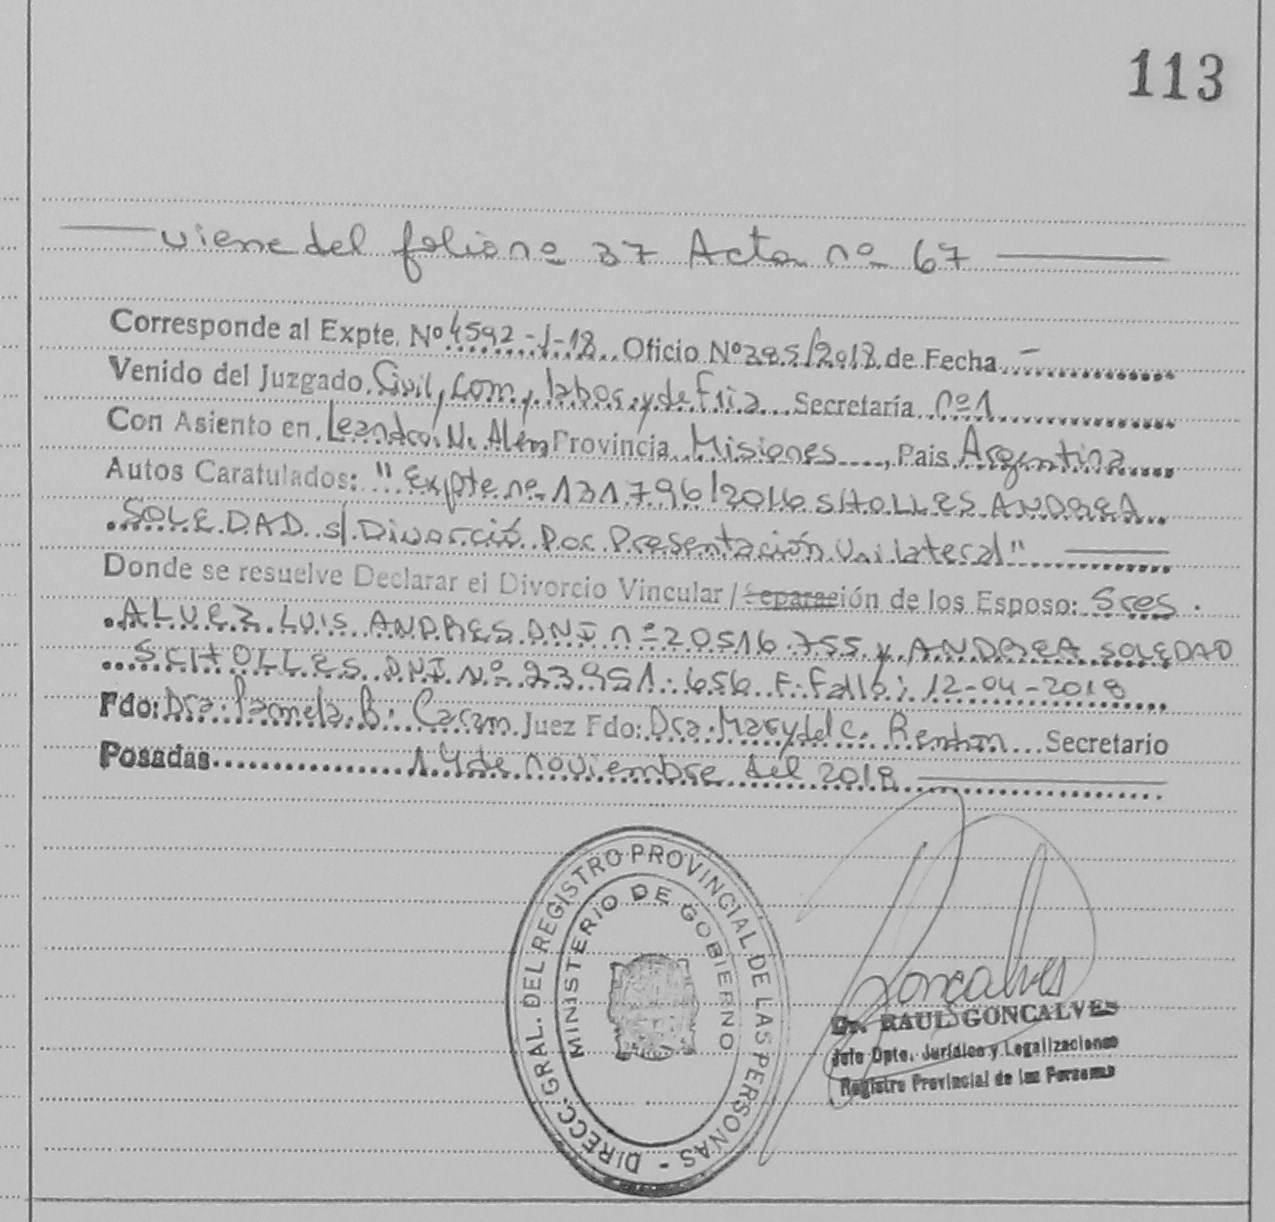 113
viene del folio nº 37 Acta nº 67
Corresponde al Expte. Nº 4592-J-18 Oficio Nº 385/2018 de Fecha -
Venido del Juzgado Civil, Com, labor, y de Flia Secretaría nº 1
Con Asiento en Leandro N. Alem Provincia Misiones, Pais Argentina
Autos Caratulados: "Expte nº 131796/2016 SHOLLES ANDREA
SOLEDAD s/ Divorció Por Presentación Unilateral"
Donde se resuelve Declarar el Divorcio Vincular / Separación de los Esposo: Sres.
ALVEZ LUIS ANDRES DNI nº 20516.755 y ANDREA SOLEDAD
SCHOLLES DNI Nº 23.951.656 F. Falló: 12-04-2018
Fdo: Dra. Pamela B. Caram Juez Fdo: Dra. Mary del C. Secretario
Posadas 14 de noviembre del 2018
DIRECC. GRAL. DEL REGISTRO PROVINCIAL DE LAS PERSONAS -
MINISTERIO DE GOBIERNO
Goncalves
Dr. RAUL GONCALVES
Jefe Dpto. Jurídico y Legalizaciones
Registro Provincial de las Personas